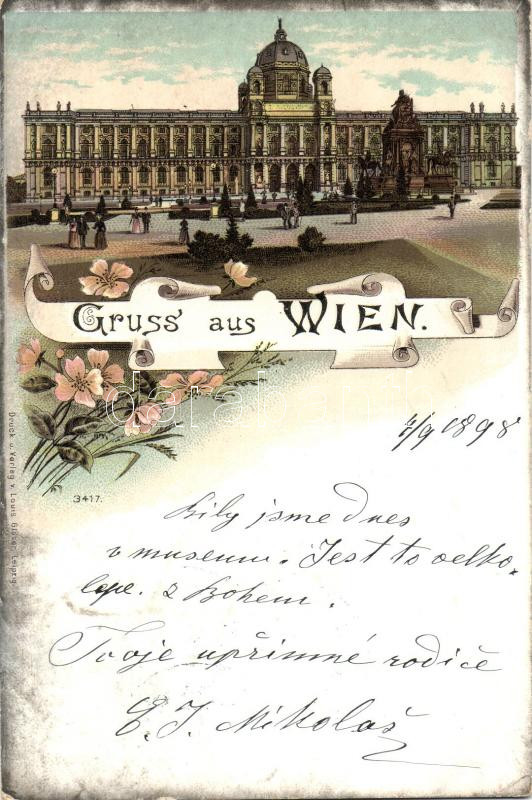 Gruss aus WIEN.
7/9 1898
Druck u. Verlag v. Louis Glaser, Leipzig.
3417.
Byly jsme dnes
v museum. Jest to velko-
lepe. z Bohem.
Tvoje upřimné rodiče
E. J. Mikolaš
darabanth